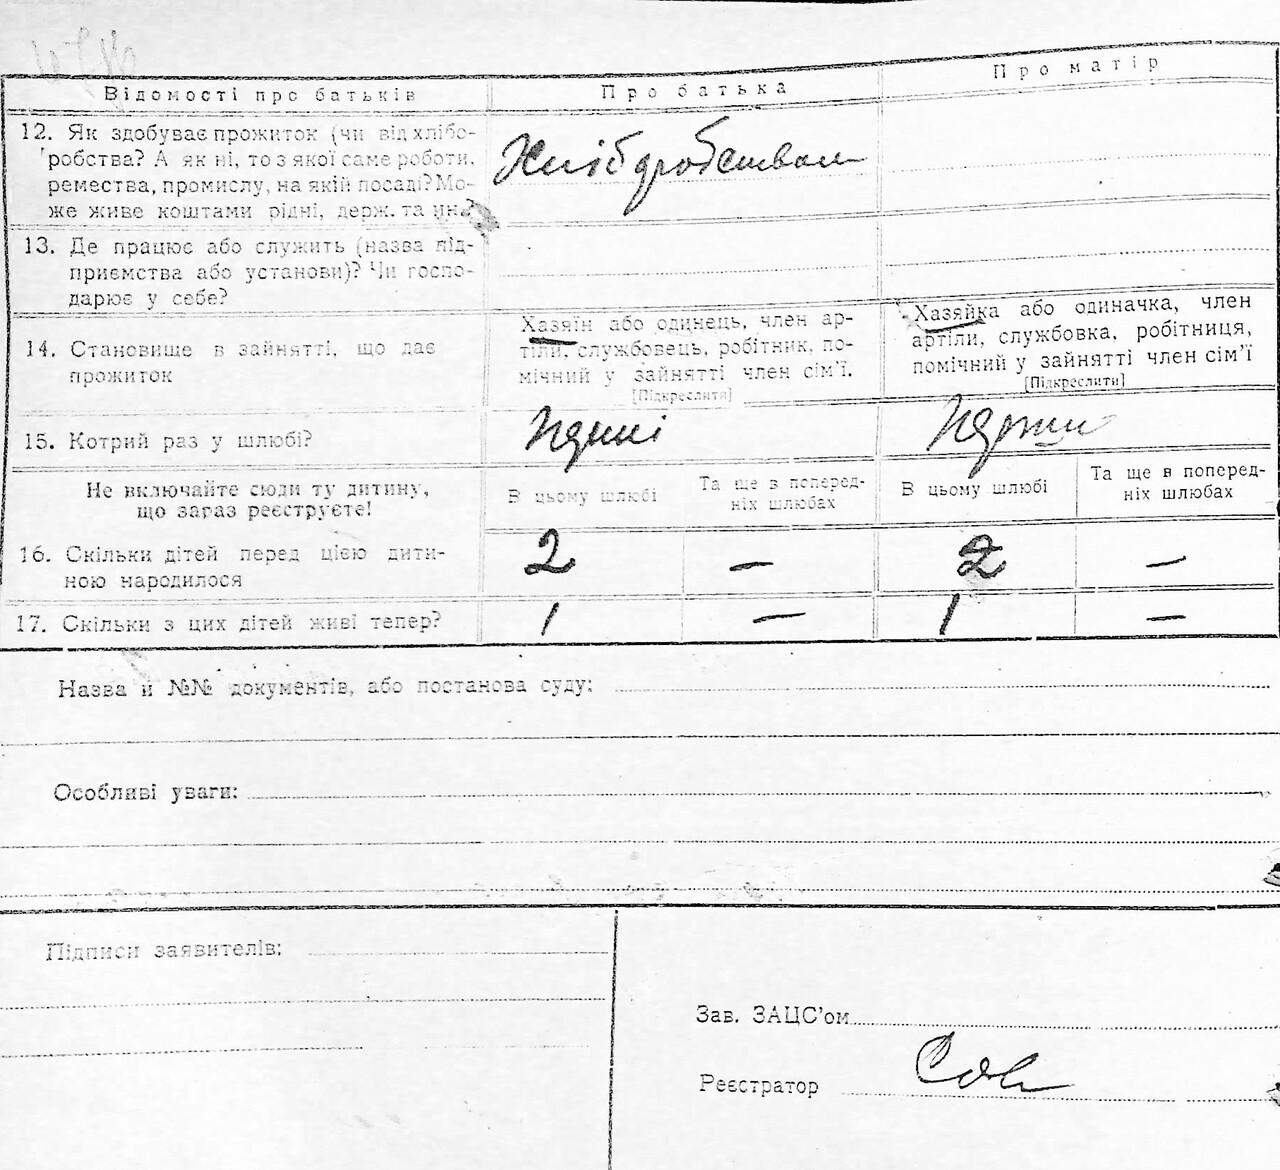 Відомості про батьків
Про батька
Про матір
12. Як здобуває прожиток (чи від хлібо-
робства? А як ні, то з якої саме роботи,
ремества, промислу, на якій посаді? Мо-
же живе коштами рідні, держ. та ин.?
Хлібдробством
13. Де працює або служить (назва під-
приємства або установи)? Чи госпо-
дарює у себе?
14. Становище в зайнятті, що дає
прожиток
Хазяїн або одинець, член ар-
тіли, службовець, робітник, по-
мічний у зайнятті член сім'ї.
[Підкреслити]
Хазяйка або одиначка, член
артіли, службовка, робітниця,
помічний у зайнятті член сім'ї
[Підкреслити]
15. Котрий раз у шлюбі?
Не включайте сюди ту дитину,
що зараз реєструєте!
В цьому шлюбі
Та ще в поперед-
ніх шлюбах
В цьому шлюбі
Та ще в поперед-
ніх шлюбах
16. Скільки дітей перед цією дити-
ною народилося
2 — 2 —
17. Скільки з цих дітей живі тепер?
1 — 1 —
Назва й №№ документів, або постанова суду:
Особливі уваги:
Підписи заявителів:
Зав. ЗАЦС'ом
Реєстратор